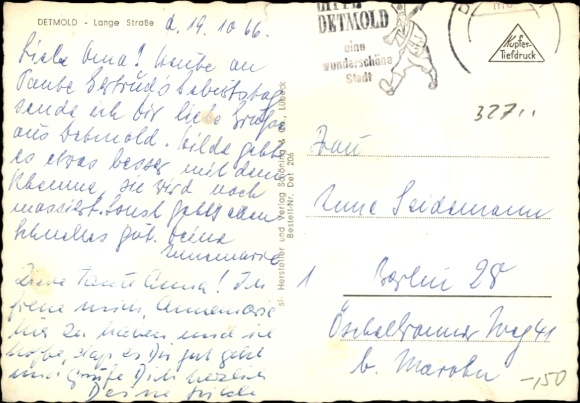 DETMOLD - Lange Straße
d. 19. 10 66.
Liebe Oma! Heute an
Tante Gertrud's Geburtstag
sende ich dir liebe Grüße
aus Detmold. Hilde geht
es etwas besser mit dem
Rheuma, sie wird noch
massiert. Sonst geht's allen
gut. Deine
Annemarie
Liebe Tante Anna! Ich
freue mich, Annemarie
hier zu haben und ich
hoffe, daß es Dir gut geht
und grüße Dich herzlich
Deine Hilde
Hersteller und Verlag Schöning & Co., Lübeck
Bestell-Nr. Det 206
DETMOLD
eine
wunderschöne
Stadt
Kupfer-
Tiefdruck
327..
Frau
Anna Seidemann
1 Berlin 28
Weg 41
b.
-,50